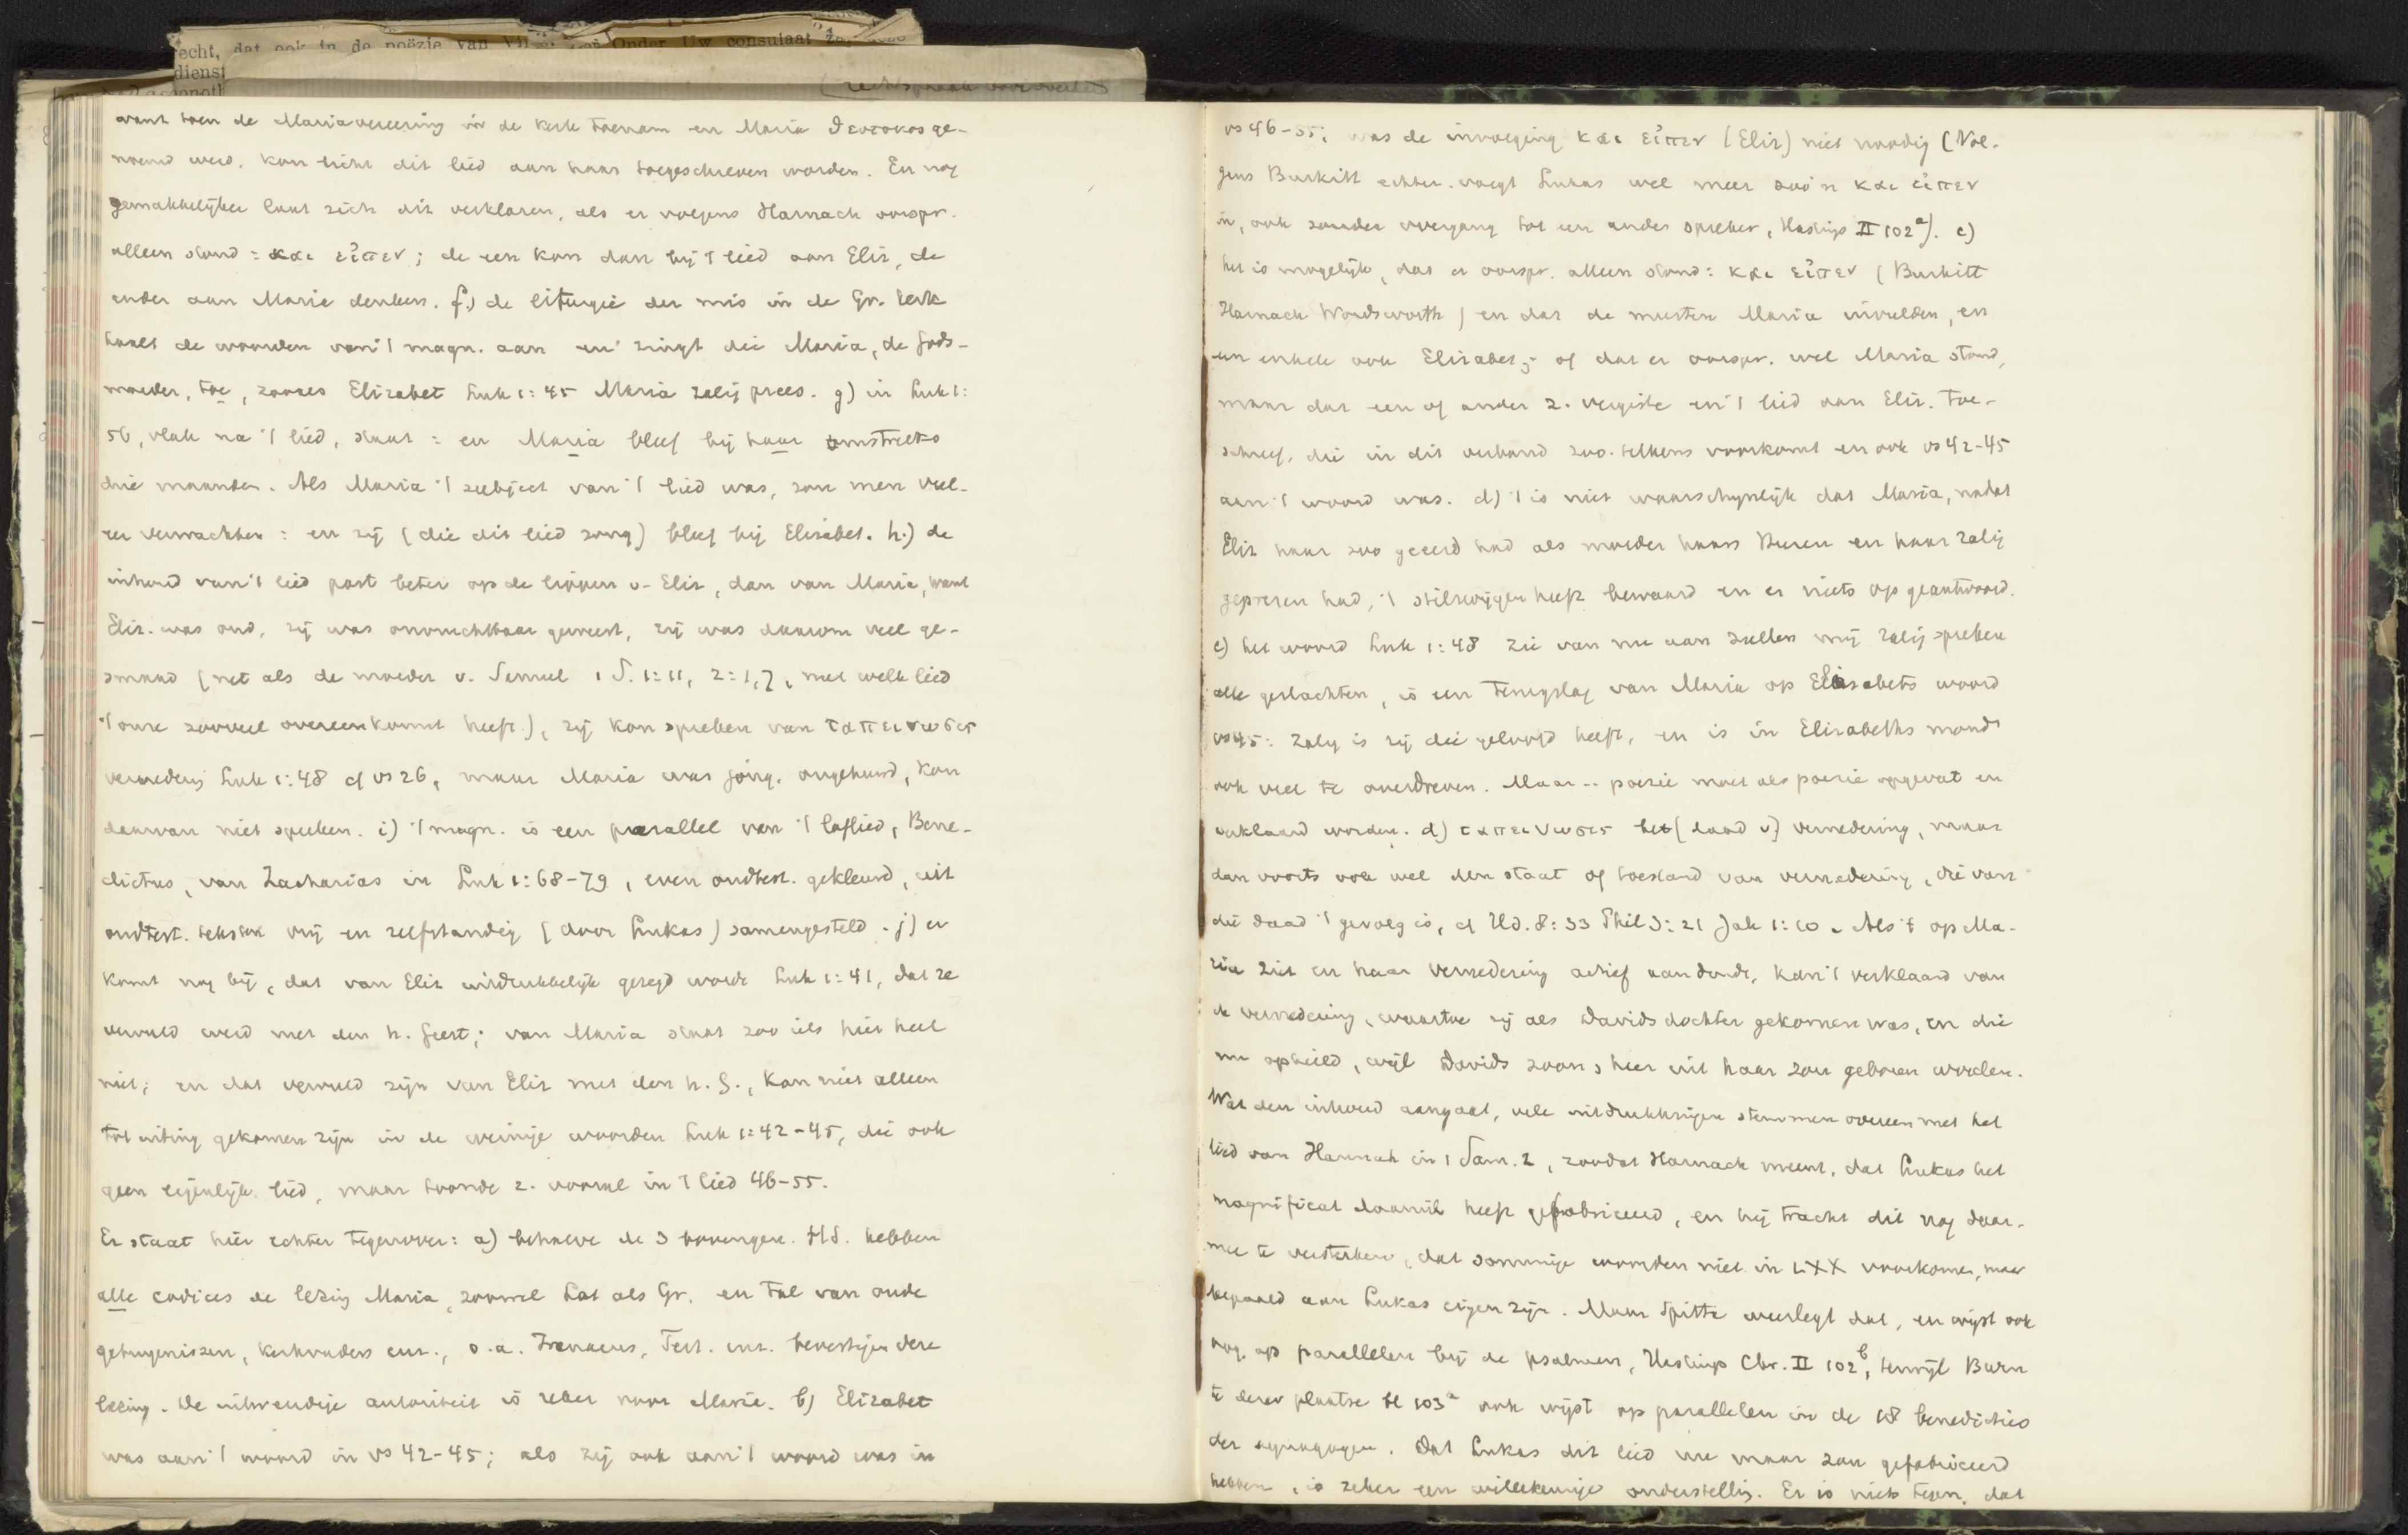 echt, dat ook in de poëzie van Onder Uw consulaat
dienst
want toen de Mariavereering in de kerk toenam en Maria θεοτοκος ge-
noemd werd, kon licht dit lied aan haar toegeschreven worden. En nog
gemakkelijker laat zich dit verklaren, als er volgens Harnack oorspr.
alleen stond: και εἶπεν; de een kon dan bij 't lied aan Eliz, de
ander aan Maria denken. f.) de liturgie der mis in de Gr. kerk
haalt de woorden van 't magn. aan en zingt die Maria, de Gods-
moeder, toe, zooals Elizabet Luk 1:45 Maria zalig prees. g) in Luk 1:
56, vlak na 't lied, staat: en Maria bleef bij haar omstreeks
drie maanden. Als Maria 't subject van 't lied was, zou men veel-
eer verwachten: en zij (die dit lied zong) bleef bij Elisabet. h.) de
inhoud van 't lied past beter op de lippen v. Eliz, dan van Maria, want
Eliz. was oud, zij was onvruchtbaar geweest, zij was daarom veel ge-
smaad (net als de moeder v. Samuel 1 S. 1:11, 2:1,7, met welk lied
't onze zooveel overeenkomst heeft), zij kon spreken van ταπεινωσις
vernedering Luk 1:48 cf vs 26, maar Maria was jong, ongehuwd, kon
daarvan niet spreken. i) 't magn. is een parallel van 't loflied, Bene-
dictus, van Zacharias in Luk 1:68-79, even oudtest. gekleurd, uit
oudtest. teksten vrij en zelfstandig (door Lukas) samengesteld. j) er
komt nog bij, dat van Eliz uitdrukkelijk gezegd wordt Luk 1:41, dat ze
vervuld werd met den h. Geest; van Maria staat zoo iets hier heel
niet; en dat vervuld zijn van Eliz met den h. G., kan niet alleen
tot uiting gekomen zijn in de weinige woorden Luk 1:42-45, die ook
geen eigenlijk lied, maar toonde z. vooral in 't lied 46-55.
Er staat hier echter tegenover: a) behalve de 3 bovengen. HS. hebben
alle codices de lezing Maria, zoowel Lat als Gr. en tal van oude
getuigenissen, kerkvaders enz., o.a. Irenaeus, Tert. enz. bevestigen deze
lezing. De uitwendige autoriteit is zeker voor Maria. b) Elizabet
was aan 't woord in vs 42-45; als zij ook aan 't woord was in
vs 46-55; was de invoeging και εἶπεν (Eliz) niet noodig (Vol-
gens Burkitt echter voegt Lukas wel meer zoo'n και εἶπεν
in, ook zonder overgang tot een ander spreker, Hastings II 102a). c)
het is mogelijk, dat er oorspr. alleen stond: και εἶπεν (Burkitt
Harnack Wordsworth) en dat de meesten Maria invulden, en
een enkele ook Elizabet; of dat er oorspr. wel Maria stond,
maar dat een of ander z. vergiste en 't lied aan Eliz. toe-
schreef, die in dit verband zoo telkens voorkomt en ook vs 42-45
aan 't woord was. d) 't is niet waarschijnlijk dat Maria, nadat
Eliz haar zoo geeerd had als moeder haars Heeren en haar zalig
geprezen had, 't stilzwijgen heeft bewaard en er niets op geantwoord.
e) het woord Luk 1:48 zie van nu aan zullen mij zalig spreken
alle geslachten, is een terugslag van Maria op Elisabets woord
vs 45: zalig is zij die geloofd heeft, en is in Elizabeths mond
ook veel te overdreven. Maar.. poezie moet als poezie opgevat en
verklaard worden. d) ταπεινωσις het (daad v) vernedering, maar
dan voorts ook wel den staat of toestand van vernedering, die van
die daad 't gevolg is, cf Hd. 8:33 Phil 3:21 Jak 1:10. Als 't op Ma-
ria ziet en haar vernedering actief aanduidt, kan 't verklaard van
de vernedering, waartoe zij als Davids dochter gekomen was, en die
nu ophield, wijl Davids zoon, heer uit haar zou geboren worden.
Wat den inhoud aangaat, vele uitdrukkingen stemmen overeen met het
lied van Hannah in 1 Sam. 2, zoodat Harnack meent, dat Lukas het
magnificat daaruit heeft gefabriceerd, en hij tracht dit nog daar-
mee te versterken, dat sommige woorden niet in LXX voorkomen, maar
bepaald aan Lukas eigen zijn. Maar Spitta weerlegt dat, en wijst ook
nog op parallelen bij de psalmen, Hastings Chr. II 102b, terwijl Burn
te dezer plaatse bl 103a ook wijst op parallelen in de 18 benedicties
der synagoge. Dat Lukas dit lied nu maar zou gefabriceerd
hebben, is zeker een willekeurige onderstelling. Er is niets tegen, dat